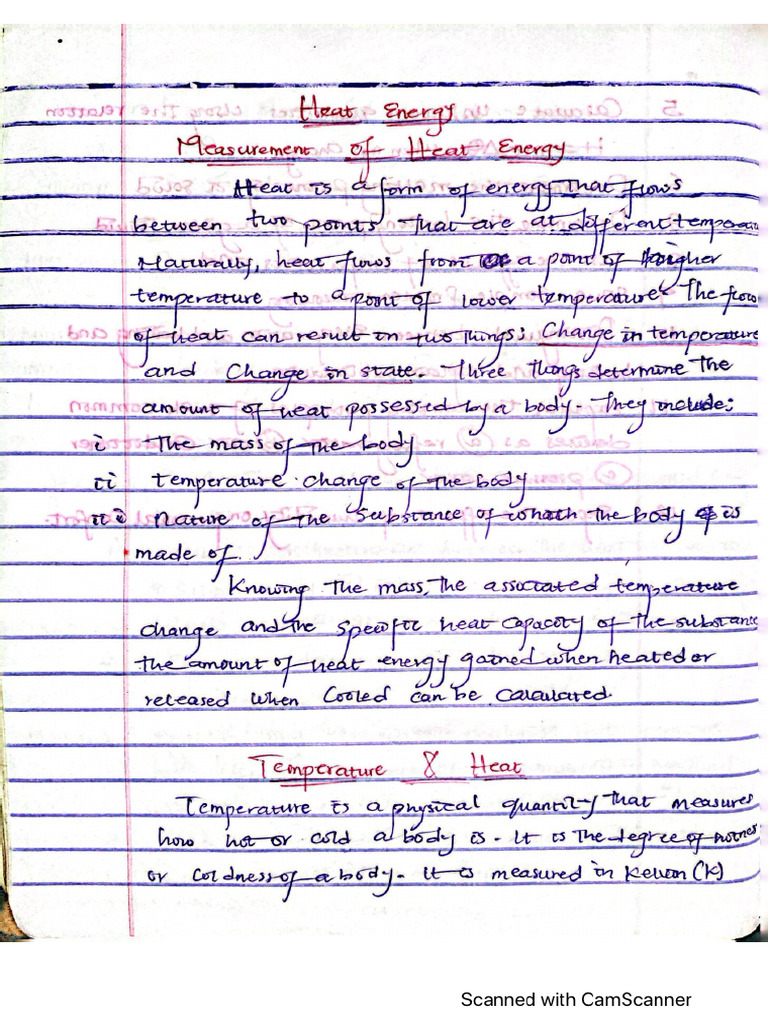 Heat Energy
Measurement of Heat Energy
Heat is a form of energy that flows
between two points that are at different tempera
Naturally, heat flows from a point of higher
temperature to a point of lower temperature. The flow
of heat can result in two things; Change in temperature
and Change in state. Three things determine the
amount of heat possessed by a body. They include:
i The mass of the body
ii temperature change of the body
iii nature of the substance of which the body is
made of.
Knowing the mass, the associated temperature
change and the specific heat capacity of the substance
the amount of heat energy gained when heated or
released when cooled can be calculated.
Temperature & Heat
Temperature is a physical quantity that measures
how hot or cold a body is. It is the degree of hotnes
or coldness of a body. It is measured in Kelvin (K)
Scanned with CamScanner